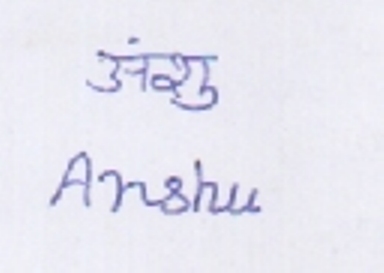 अंशु
Anshu